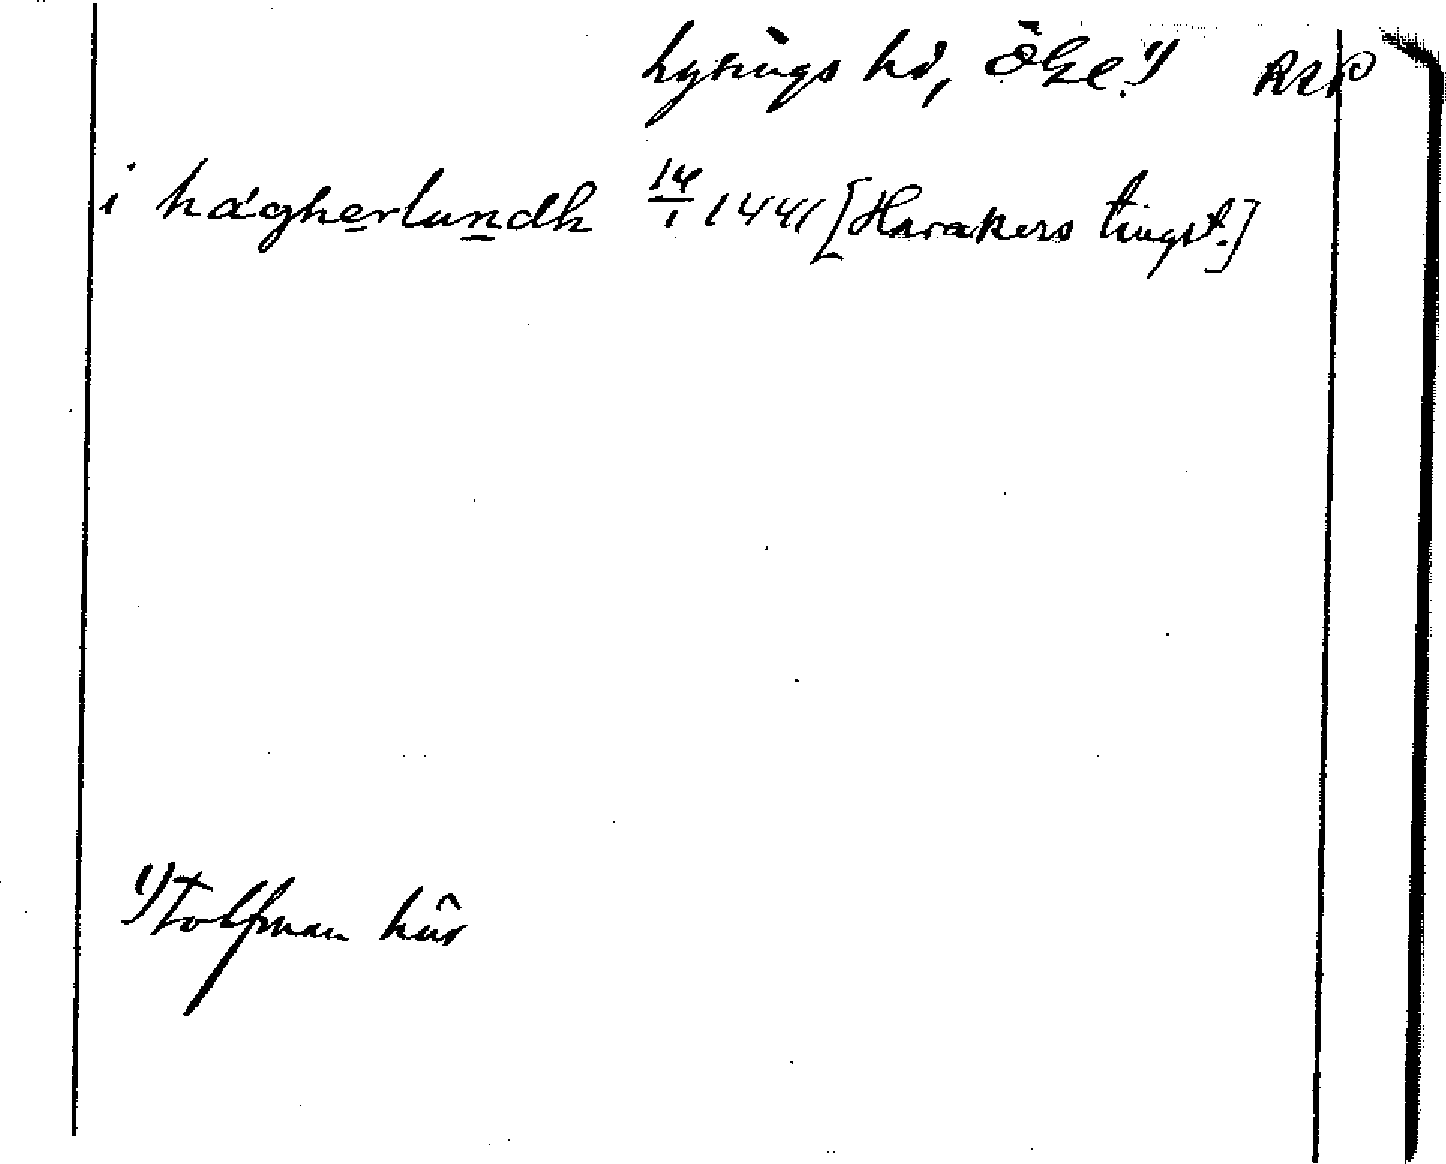 Lysings hd, ÖGe.¹⁾ RAP
i hägherlundh 14/1 1441 [Harakers tingst.]
¹⁾ tolfman här